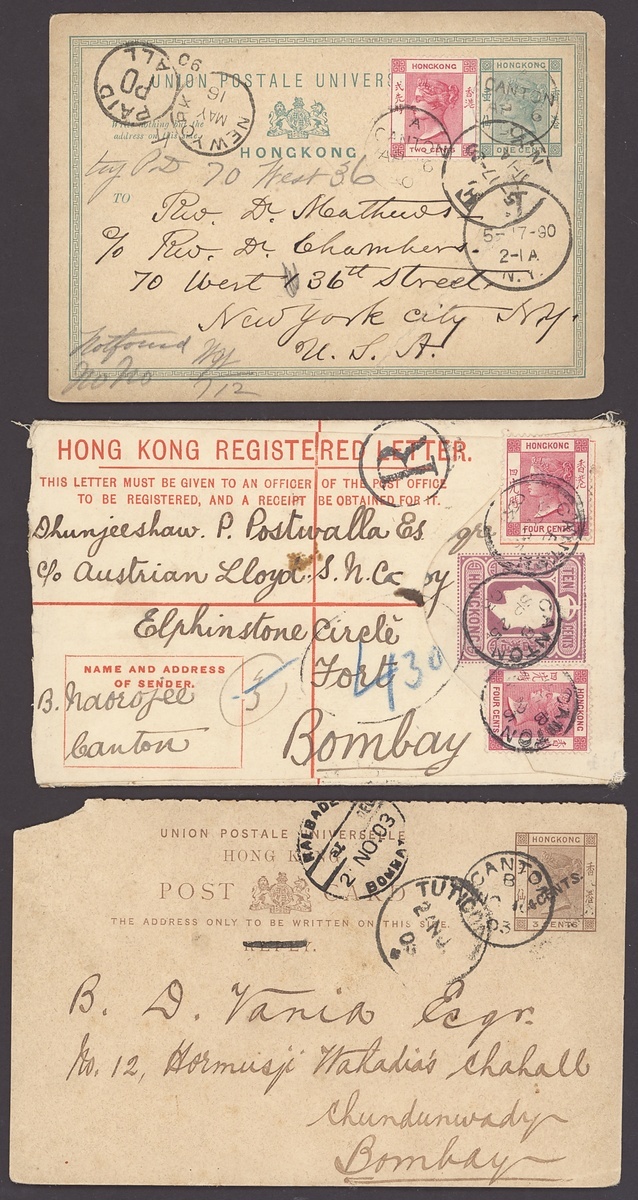 UNION POSTALE UNIVERS
HONGKONG
HONGKONG
TWO CENTS
ONE CENT
CANTON
PAID
ALL
PD
NEW YORK
MAY
16
90
Write nothing but the
address on this side.
HONGKONG
try P.D 70 West 36
TO
Rev. Dr. Mathews
c/o Rev. Dr. Chambers
70 West 36th Street
New York city N.Y.
U. S. A.
5-17-90
2-1A
N.Y.
Notfound
No No
HONG KONG REGISTERED LETTER.
R
THIS LETTER MUST BE GIVEN TO AN OFFICER OF THE POST OFFICE
TO BE REGISTERED, AND A RECEIPT BE OBTAINED FOR IT.
HONGKONG
FOUR CENTS
Dhunjeeshaw. P. Postwalla Esqre
c/o Austrian Lloyd. S. N. Coy
HONGKONG
TEN CENTS
CANTON
Elphinstone Circle
Fort
Bombay
NAME AND ADDRESS
OF SENDER.
B. Naorojee
Canton
5
430
FOUR CENTS
HONGKONG
CANTON
UNION POSTALE UNIVERSELLE
HONG KONG
POST CARD
THE ADDRESS ONLY TO BE WRITTEN ON THIS SIDE.
REPLY.
2 NO.03
BOMBAY
HONGKONG
4 CENTS.
3 CENTS
CANTON
B
03
B. D. Vania Esqr.
No. 12, Hormusji Wahadia's Chahall
Chundunwady
Bombay